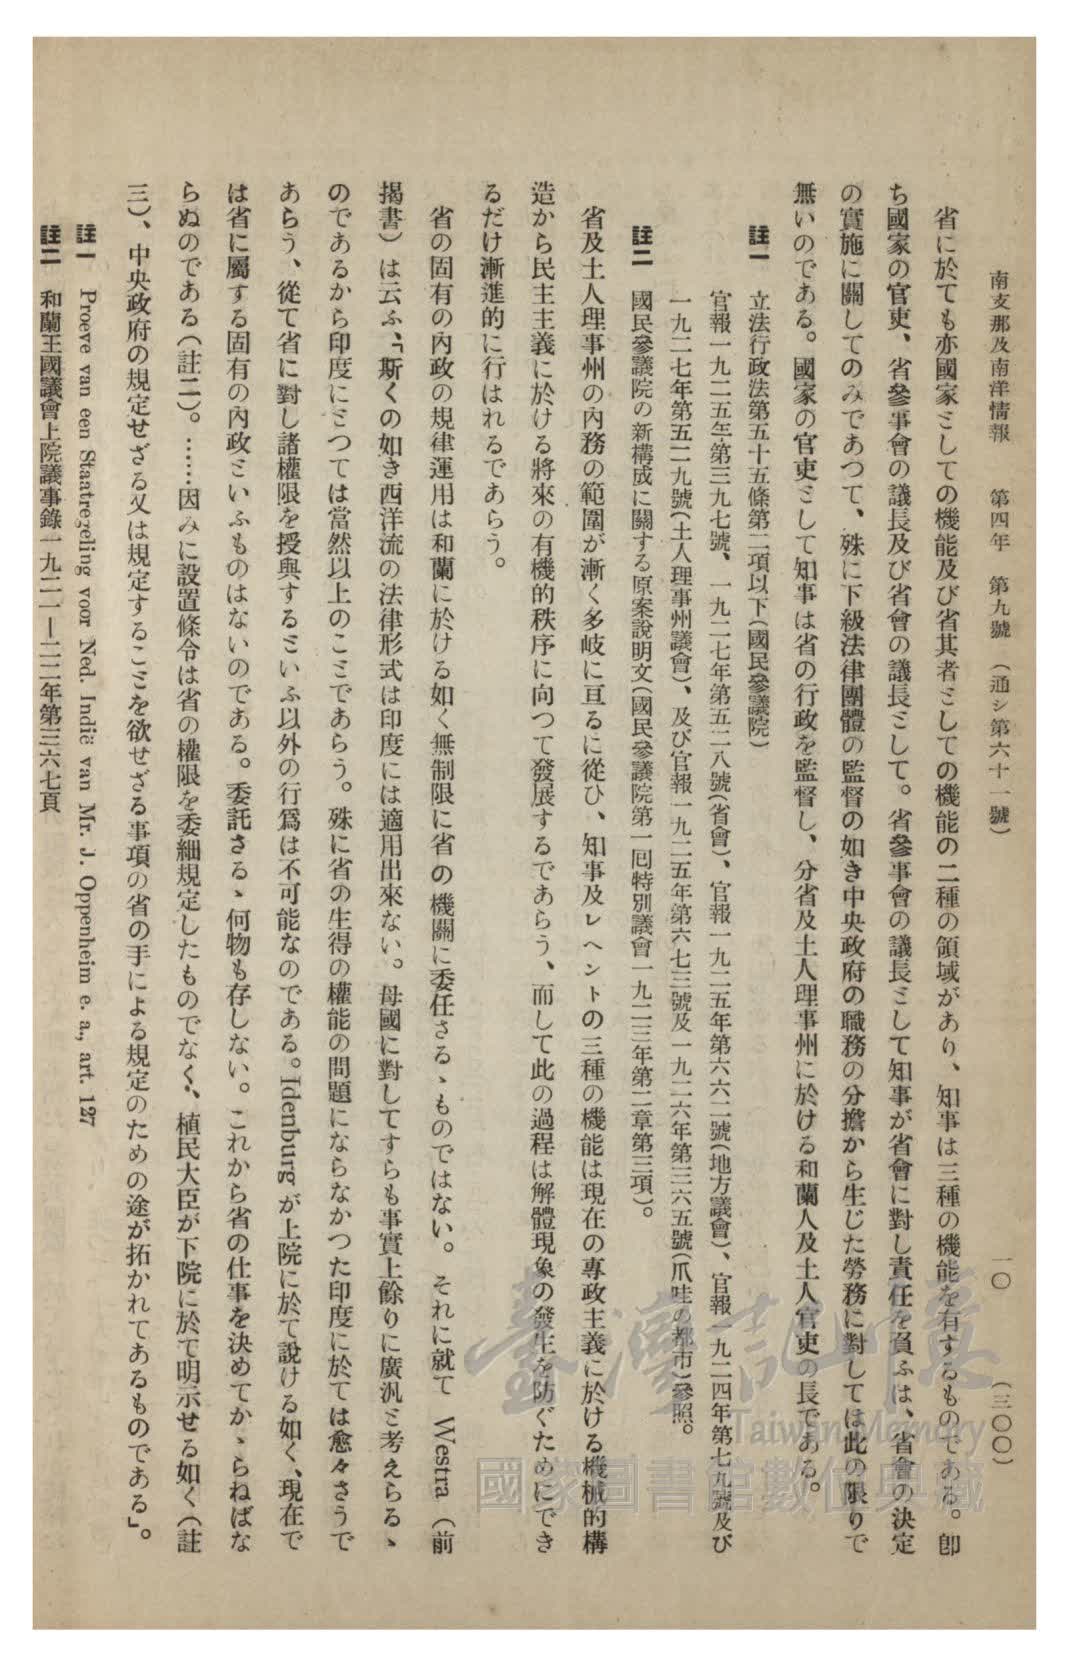 南支那及南洋情報　第四年　第九號　（通シ第六十一號）　一〇　（三〇〇）
省に於ても亦國家ミしての機能及び省其者ミしての機能の二種の領域があり、知事は三種の機能を有するものである。卽
ち國家の官吏、省參事會の議長及び省會の議長ミして。省參事會の議長ミして知事が省會に對し責任を負ふは、省會の決定
の實施に關してのみであつて、殊に下級法律團體の監督の如き中央政府の職務の分擔から生じた勞務に對しては此の限りで
無いのである。國家の官吏ミして知事は省の行政を監督し、分省及土人理事州に於ける和蘭人及土人官吏の長である。
註一　立法行政法第五十五條第二項以下（國民參議院）
官報一九二五年第三九七號、一九二七年第五二八號（省會）、官報一九二五年第六六二號（地方議會）、官報一九二四年第七九號及び
一九二七年第五二九號（土人理事州議會）、及び官報一九二五年第六七三號及一九二六年第三六五號（爪哇の都市）參照。
註二　國民參議院の新構成に關する原案說明文（國民參議院第一囘特別議會一九二三年第二章第三項）。
省及土人理事州の內務の範圍が漸く多岐に亘るに從ひ、知事及レヘントの三種の機能は現在の專政主義に於ける機械的構
造から民主主義に於ける將來の有機的秩序に向つて發展するであらう、而して此の過程は解體現象の發生を防ぐためにでき
るだけ漸進的に行はれるであらう。
省の固有の內政の規律運用は和蘭に於ける如く無制限に省の機關に委任さるゝものではない。それに就て Westra（前
揭書）は云ふ、「斯くの如き西洋流の法律形式は印度には適用出來ない。母國に對してすらも事實上餘りに廣汎ミ考えらるゝ
のであるから印度にミつては當然以上のこミであらう。殊に省の生得の權能の問題にならなかつた印度に於ては愈々さうで
あらう、從て省に對し諸權限を授與するミいふ以外の行爲は不可能なのである。Idenburg が上院に於て說ける如く、現在で
は省に屬する固有の內政ミいふものはないのである。委託さるゝ何物も存しない。これから省の仕事を決めてかゝらねばな
らぬのである（註二）。……因みに設置條令は省の權限を委細規定したものでなく、植民大臣が下院に於て明示せる如く（註
三）、中央政府の規定せざる又は規定するこミを欲せざる事項の省の手による規定のための途が拓かれてあるものである」。
註一　Proeve van een Staatregeling voor Ned. Indië van Mr. J. Oppenheim e. a., art. 127
註二　和蘭王國議會上院議事錄一九二一―二二年第三六七頁
臺灣記憶
Taiwan Memory
國家圖書館數位典藏